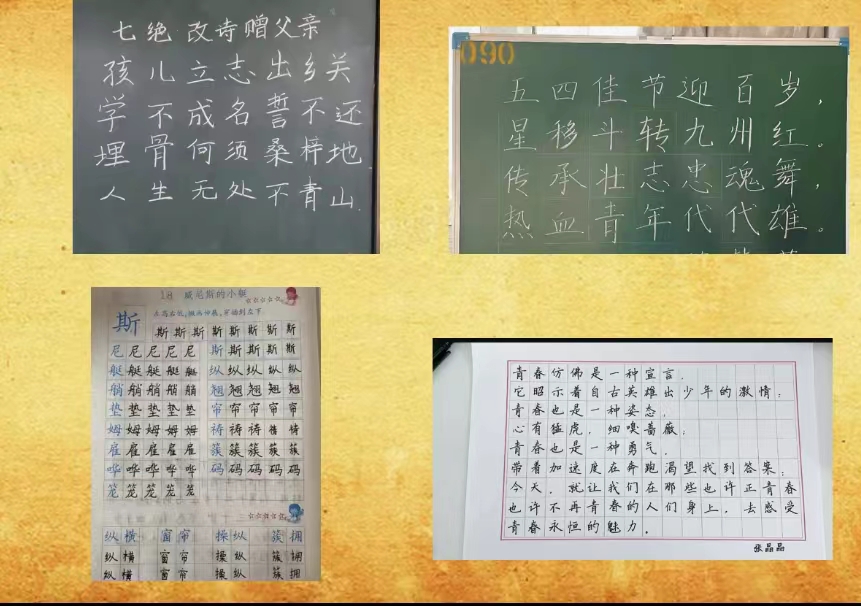 七绝·改诗赠父亲
孩儿立志出乡关
学不成名誓不还
埋骨何须桑梓地
人生无处不青山
090
五四佳节迎百岁，
星移斗转九州红。
传承壮志忠魂舞，
热血青年代代雄。
18 威尼斯的小艇
斯
斯 斯 斯 斯 斯 斯 斯 斯
尼 尼 尼 尼 尼 斯 斯 斯 斯 斯
艇 艇 艇 艇 艇 纵 纵 纵 纵 纵
艄 艄 艄 艄 艄 翘 翘 翘 翘 翘
垫 垫 垫 垫 垫 帘 帘 帘 帘 帘
姆 姆 姆 姆 姆 祷 祷 祷 祷 祷
雇 雇 雇 雇 雇 簇 簇 簇 簇 簇
哗 哗 哗 哗 哗 码 码 码 码 码
笼 笼 笼 笼 笼
纵 横 窗 帘 操 纵 簇 拥
纵 横 窗 帘 操 纵 簇 拥
纵 横 窗 帘 操 纵 簇 拥
青春仿佛是一种宣言，
它昭示着自古英雄出少年的激情；
青春也是一种姿态，
心有猛虎，细嗅蔷薇；
青春也是一种勇气，
带着加速度在奔跑渴望找到答案；
今天，就让我们在那些也许正青春
也许不再青春的人们身上，去感受
青春永恒的魅力。
张晶晶